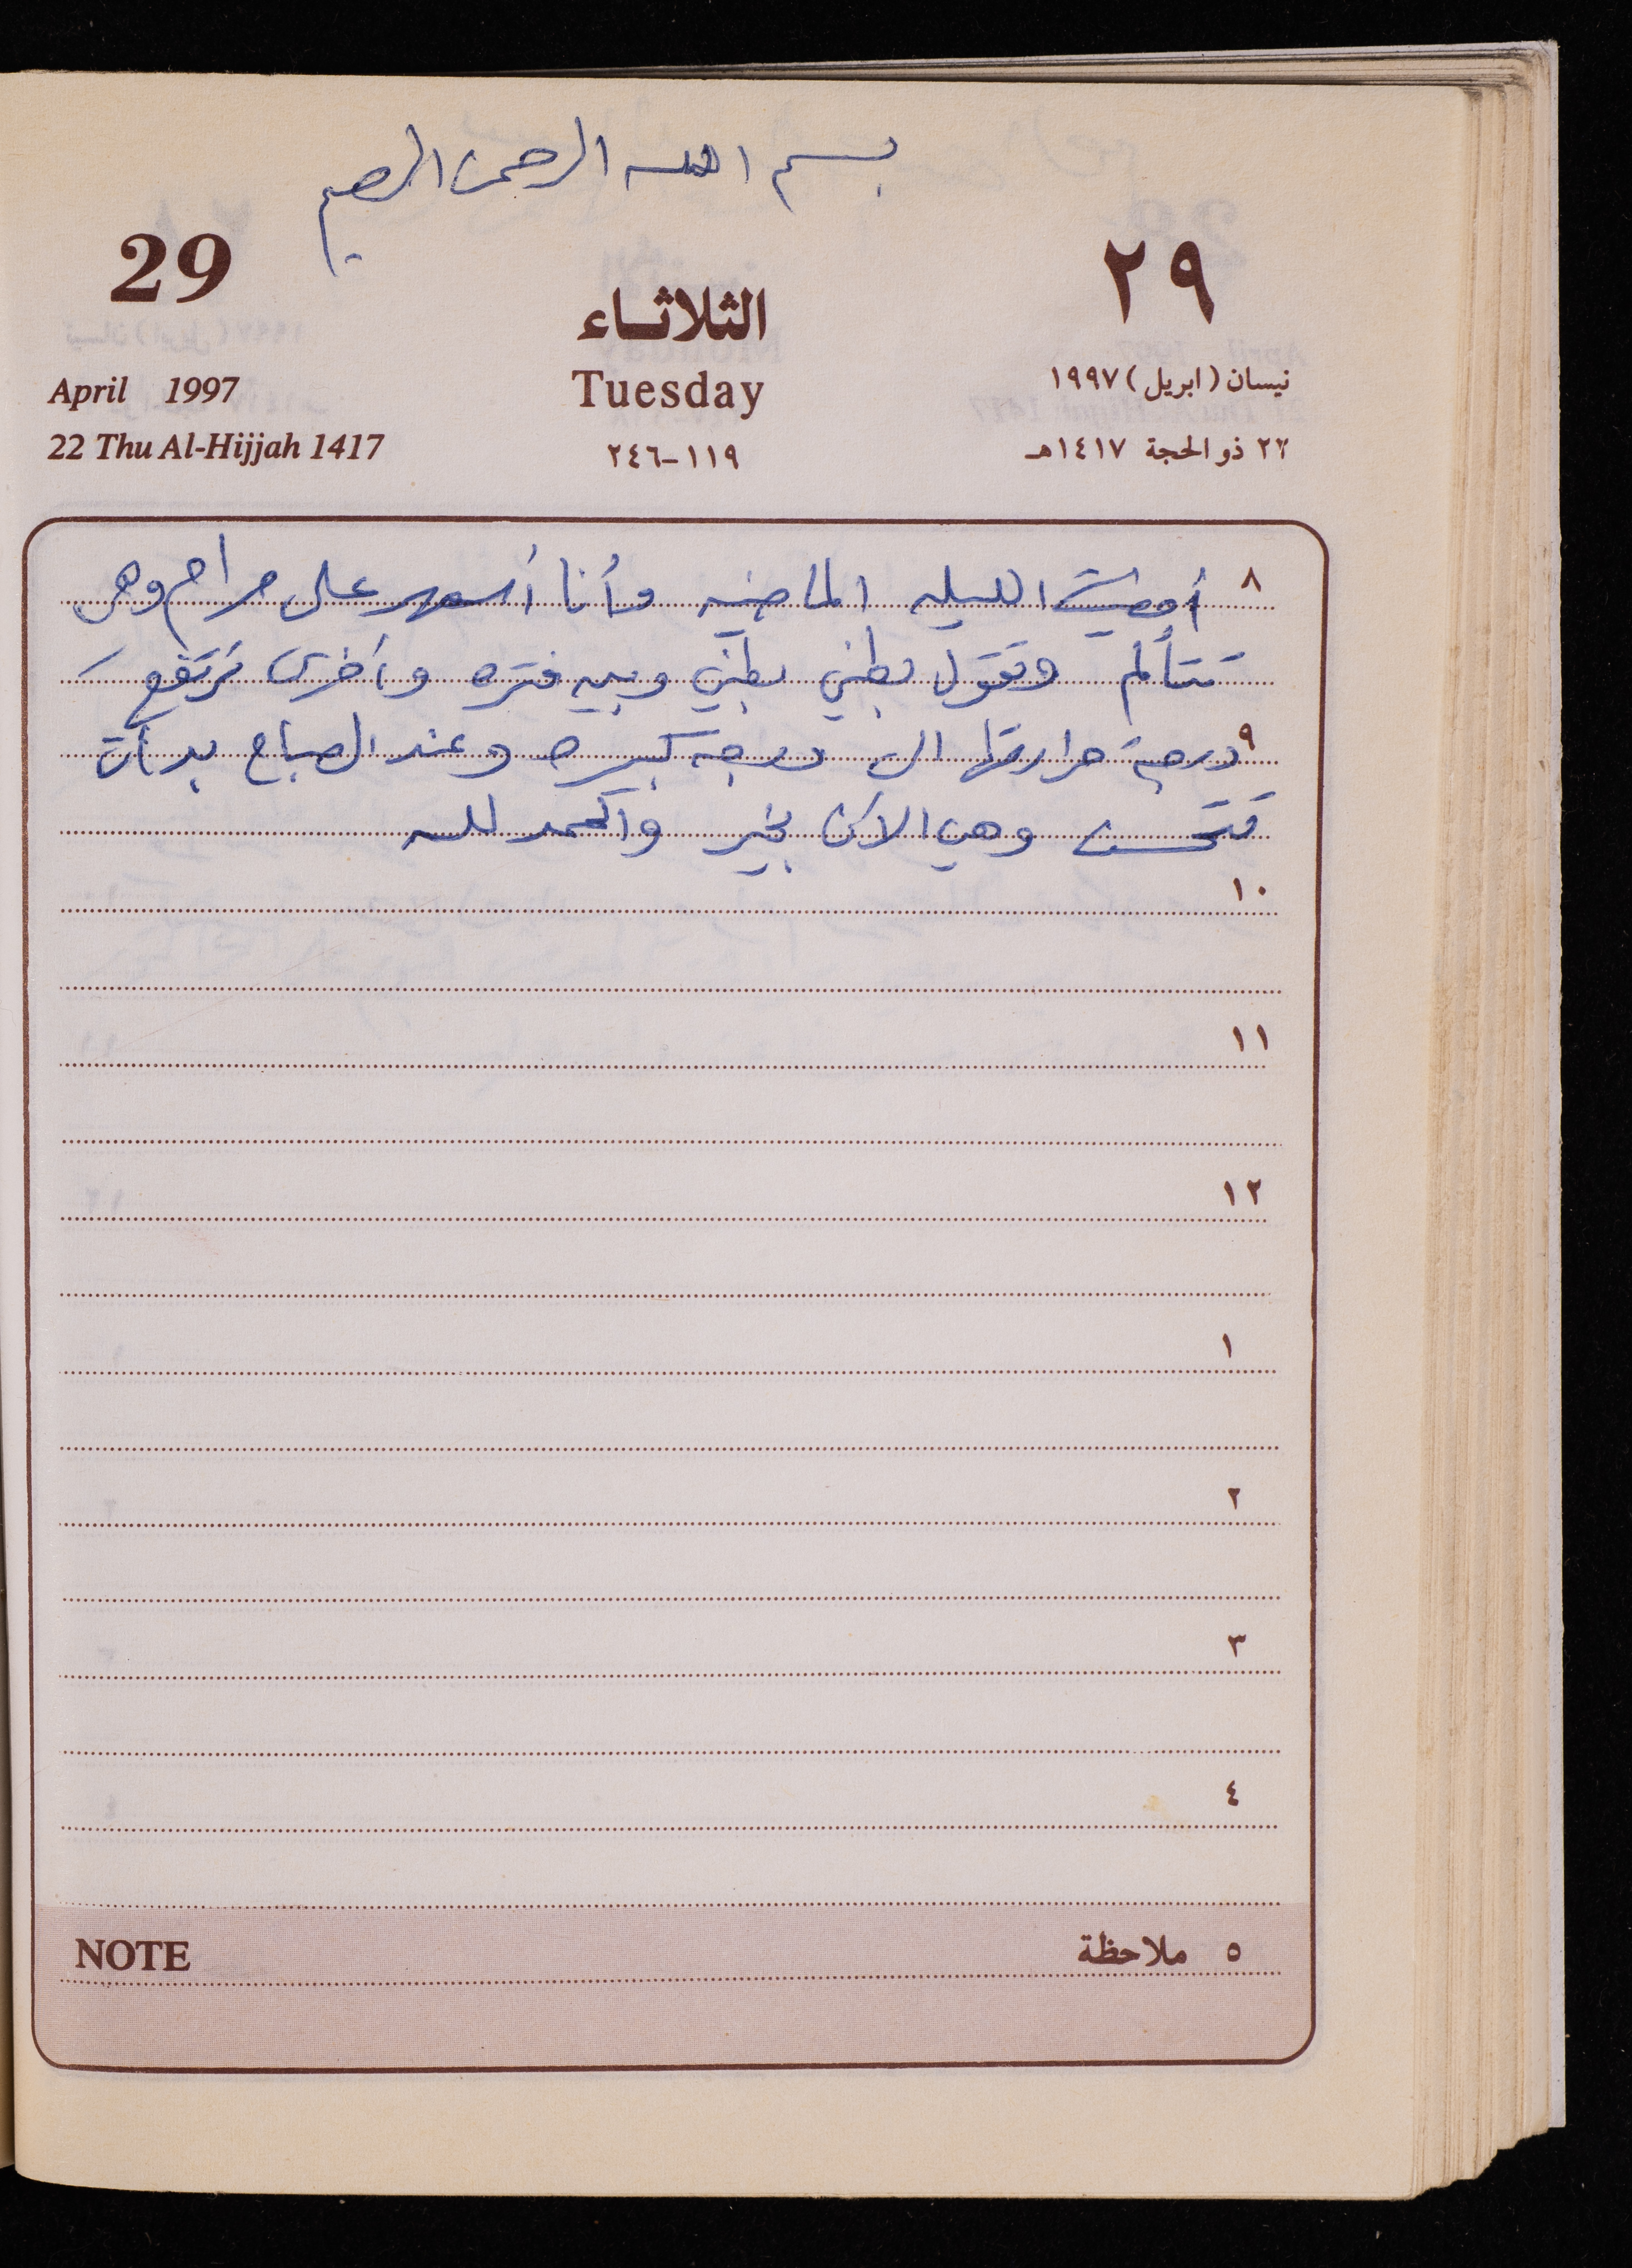 بسم الله الرحمن الرحيم
29
٢٩
الثلاثاء
April 1997
Tuesday
نيسان (ابريل) ١٩٩٧
22 Thu Al-Hijjah 1417
١١٩-٢٤٦
٢٢ ذو الحجة ١٤١٧هـ
٨ أمضيت الليله الماضيه وأنا أسهر على مرام وهي
تتألم وتقول بطني بطني وبين فتره وأخرى ترتفع
٩ درجة حرارتها الى درجه كبيره وعند الصباح بدأت
تتحسن وهي الآن بخير والحمد لله
١٠
١١
١٢
١
٢
٣
٤
NOTE ٥ ملاحظة